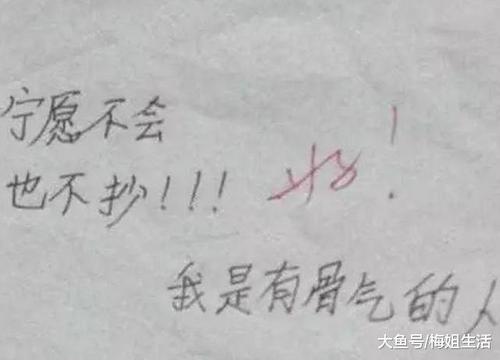 宁愿不会
也不抄!!! 好!
我是有骨气的人
大鱼号/梅姐生活